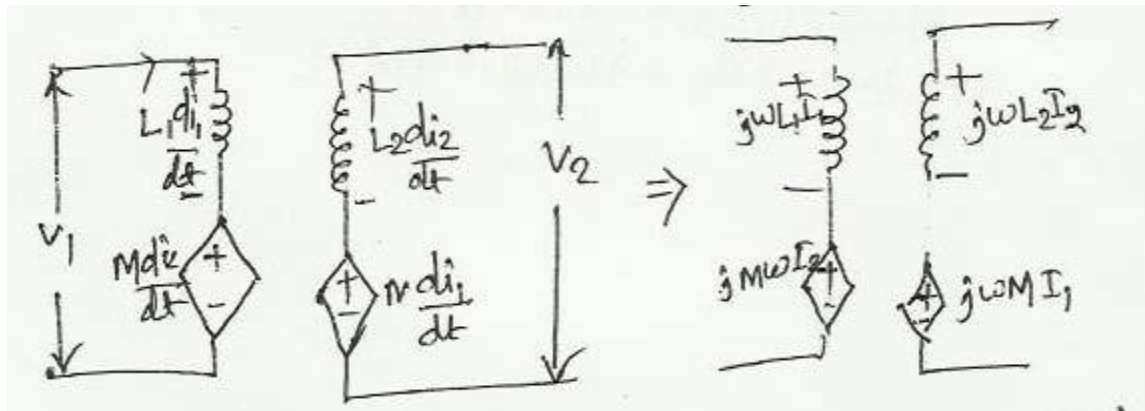 V₁
+
L₁ di₁/dt
-
M di₂/dt
+
-
+
L₂ di₂/dt
-
+
-
M di₁/dt
V₂
⇒
+
jωL₁I₁
-
jMωI₂
+
-
+
jωL₂I₂
-
+
-
jωMI₁